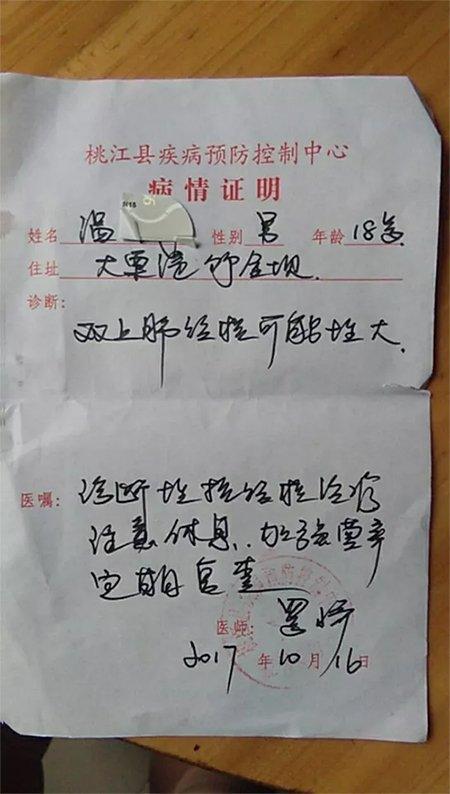 桃江县疾病预防控制中心
病情证明
姓名 温 性别 男 年龄 18岁
住址 大栗港 金坝
诊断:
双上肺结核可能性大.
医嘱: 诊断性抗结核治疗
注意休息. 加强营养
定期复查
医师:
2017年10月16日